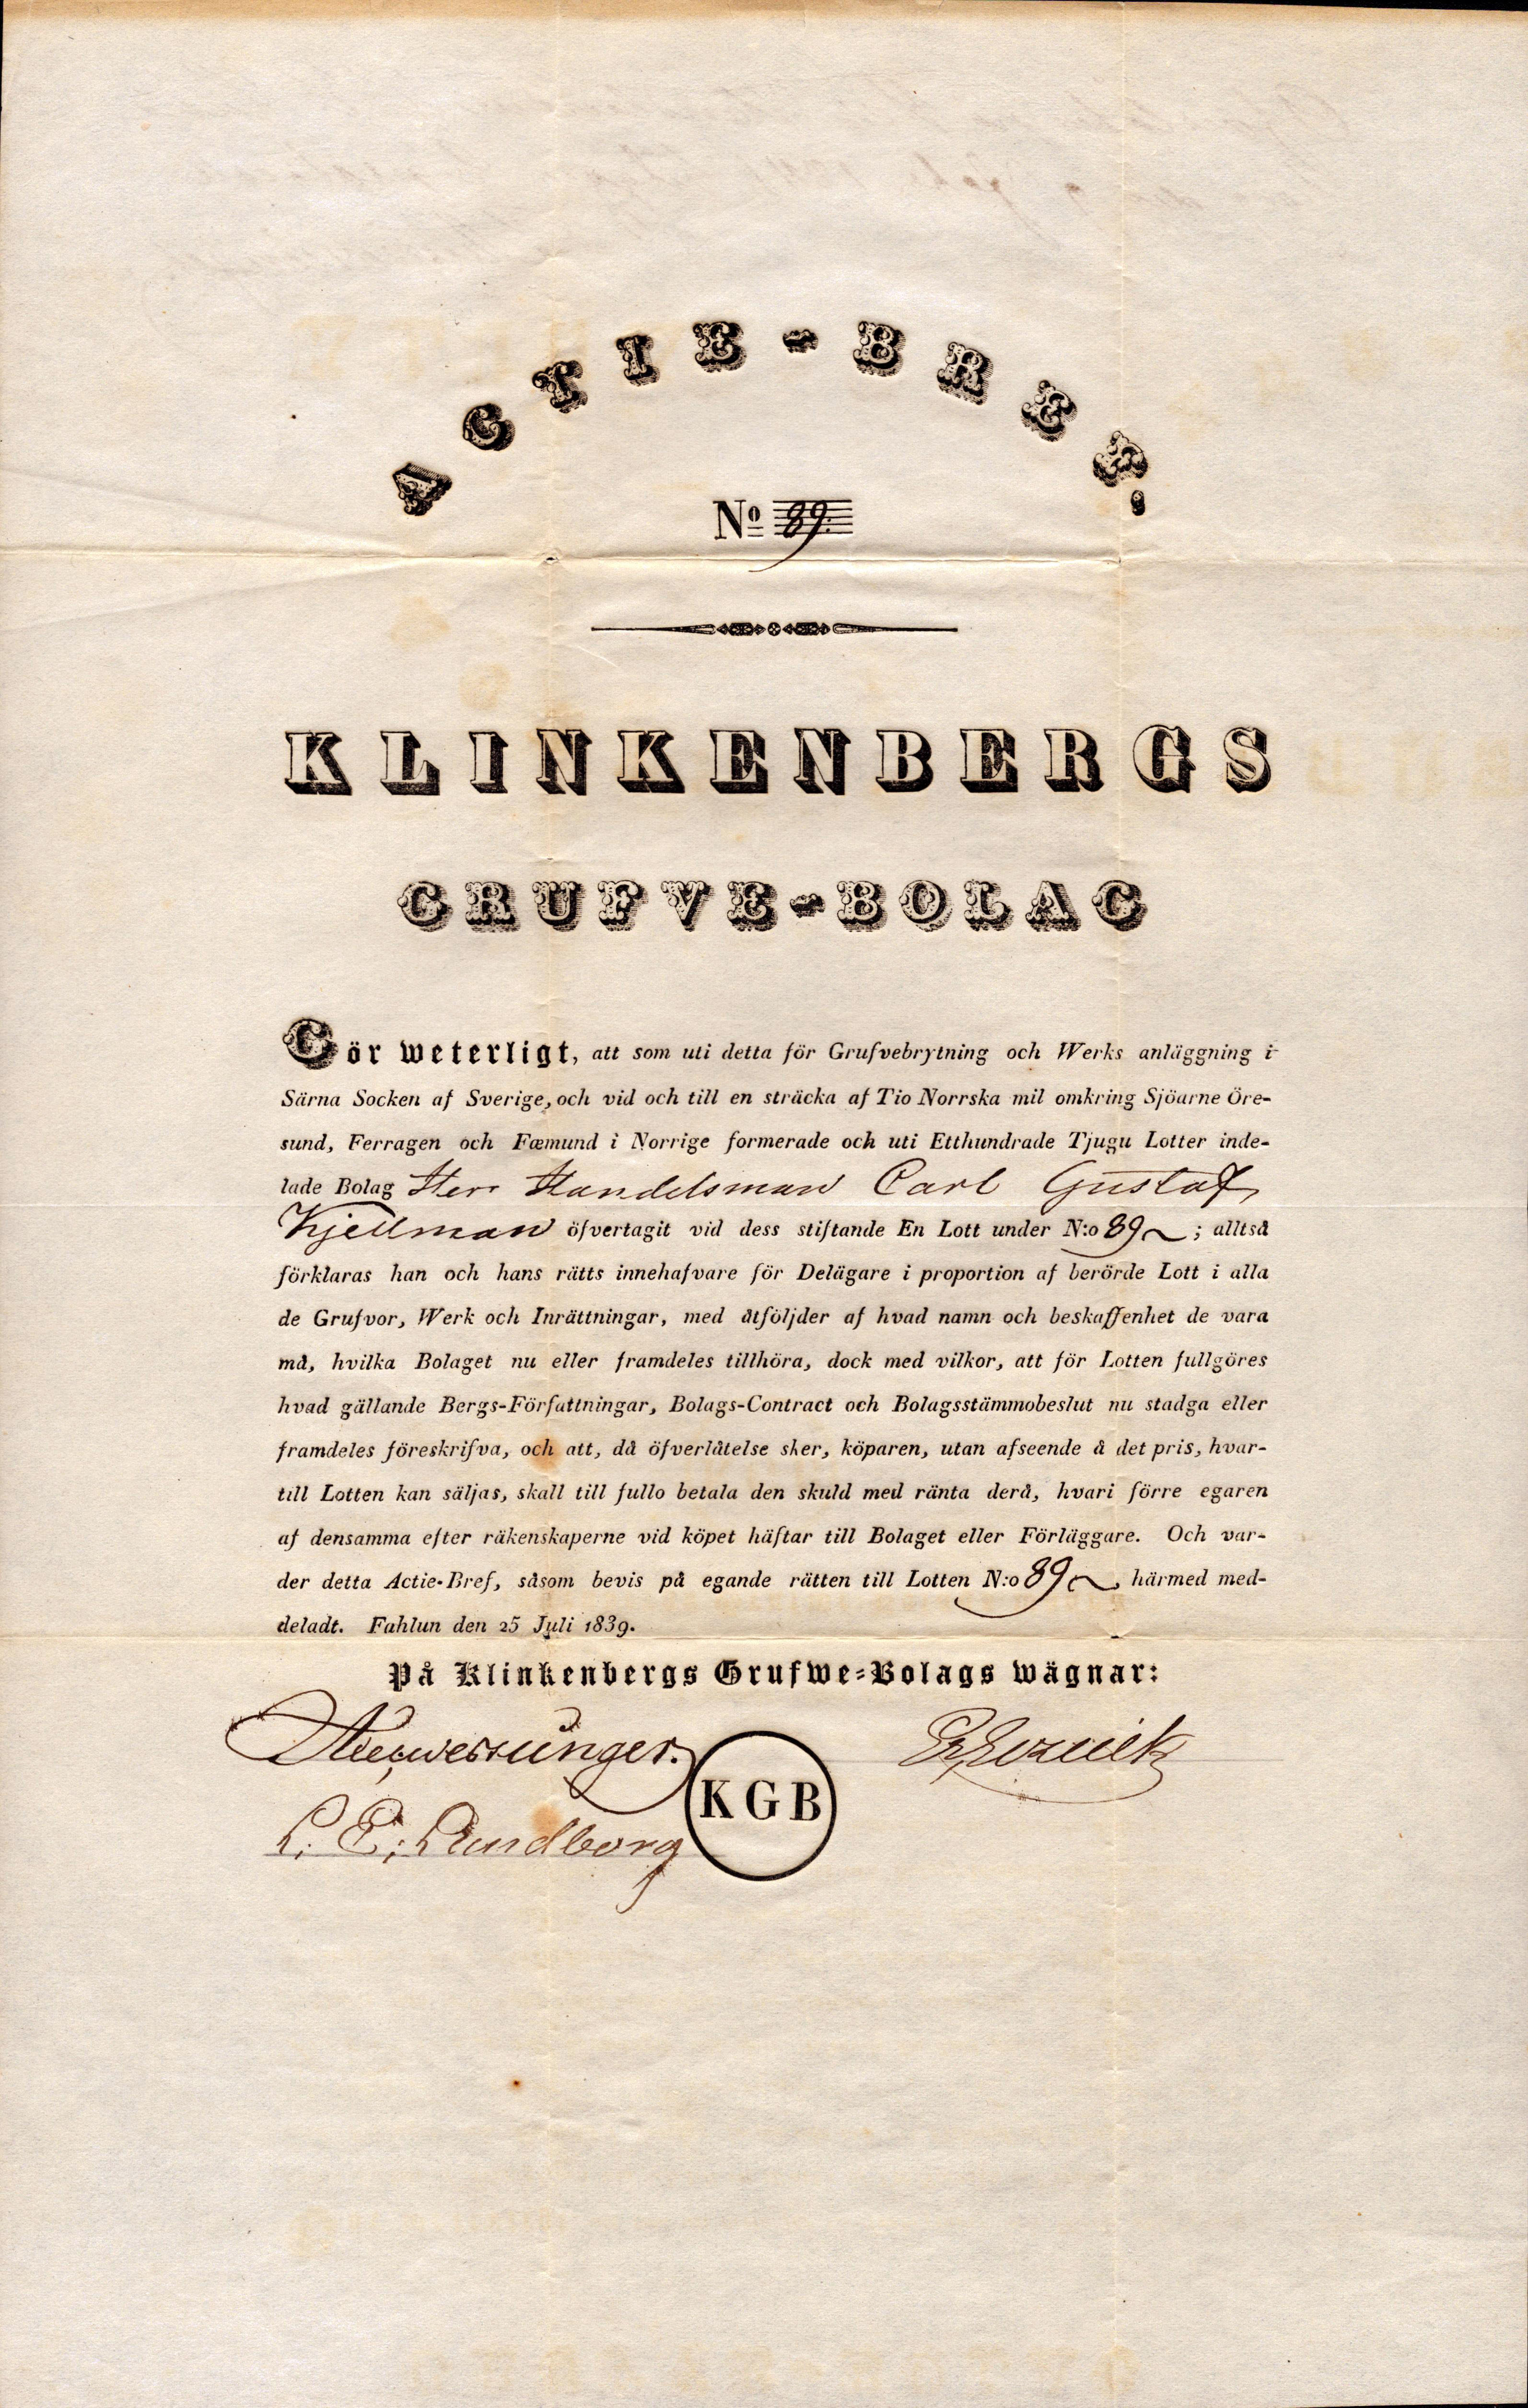 ACTIE-BREF,
No 89.
KLINKENBERGS
GRUFVE-BOLAG
Gör weterligt, att som uti detta för Grufvebrytning och Werks anläggning i
Särna Socken af Sverige, och vid och till en sträcka af Tio Norrska mil omkring Sjöarne Öre-
sund, Ferragen och Fœmund i Norrige formerade och uti Etthundrade Tjugu Lotter inde-
lade Bolag Herr Handelsman Carl Gustaf
Kjellman öfvertagit vid dess stiftande En Lott under N:o 89 ; alltså
förklaras han och hans rätts innehafvare för Delägare i proportion af berörde Lott i alla
de Grufvor, Werk och Inrättningar, med åtföljder af hvad namn och beskaffenhet de vara
må, hvilka Bolaget nu eller framdeles tillhöra, dock med vilkor, att för Lotten fullgöres
hvad gällande Bergs-Författningar, Bolags-Contract och Bolagsstämmobeslut nu stadga eller
framdeles föreskrifva, och att, då öfverlåtelse sker, köparen, utan afseende å det pris, hvar-
till Lotten kan säljas, skall till fullo betala den skuld med ränta derå, hvari förre egaren
af densamma efter räkenskaperne vid köpet häftar till Bolaget eller Förläggare. Och var-
der detta Actie-Bref, såsom bevis på egande rätten till Lotten N:o 89 , härmed med-
deladt. Fahlun den 25 Juli 1839.
På Klinkenbergs Grufwe-Bolags wägnar:
KGB
L. E. Lundborg